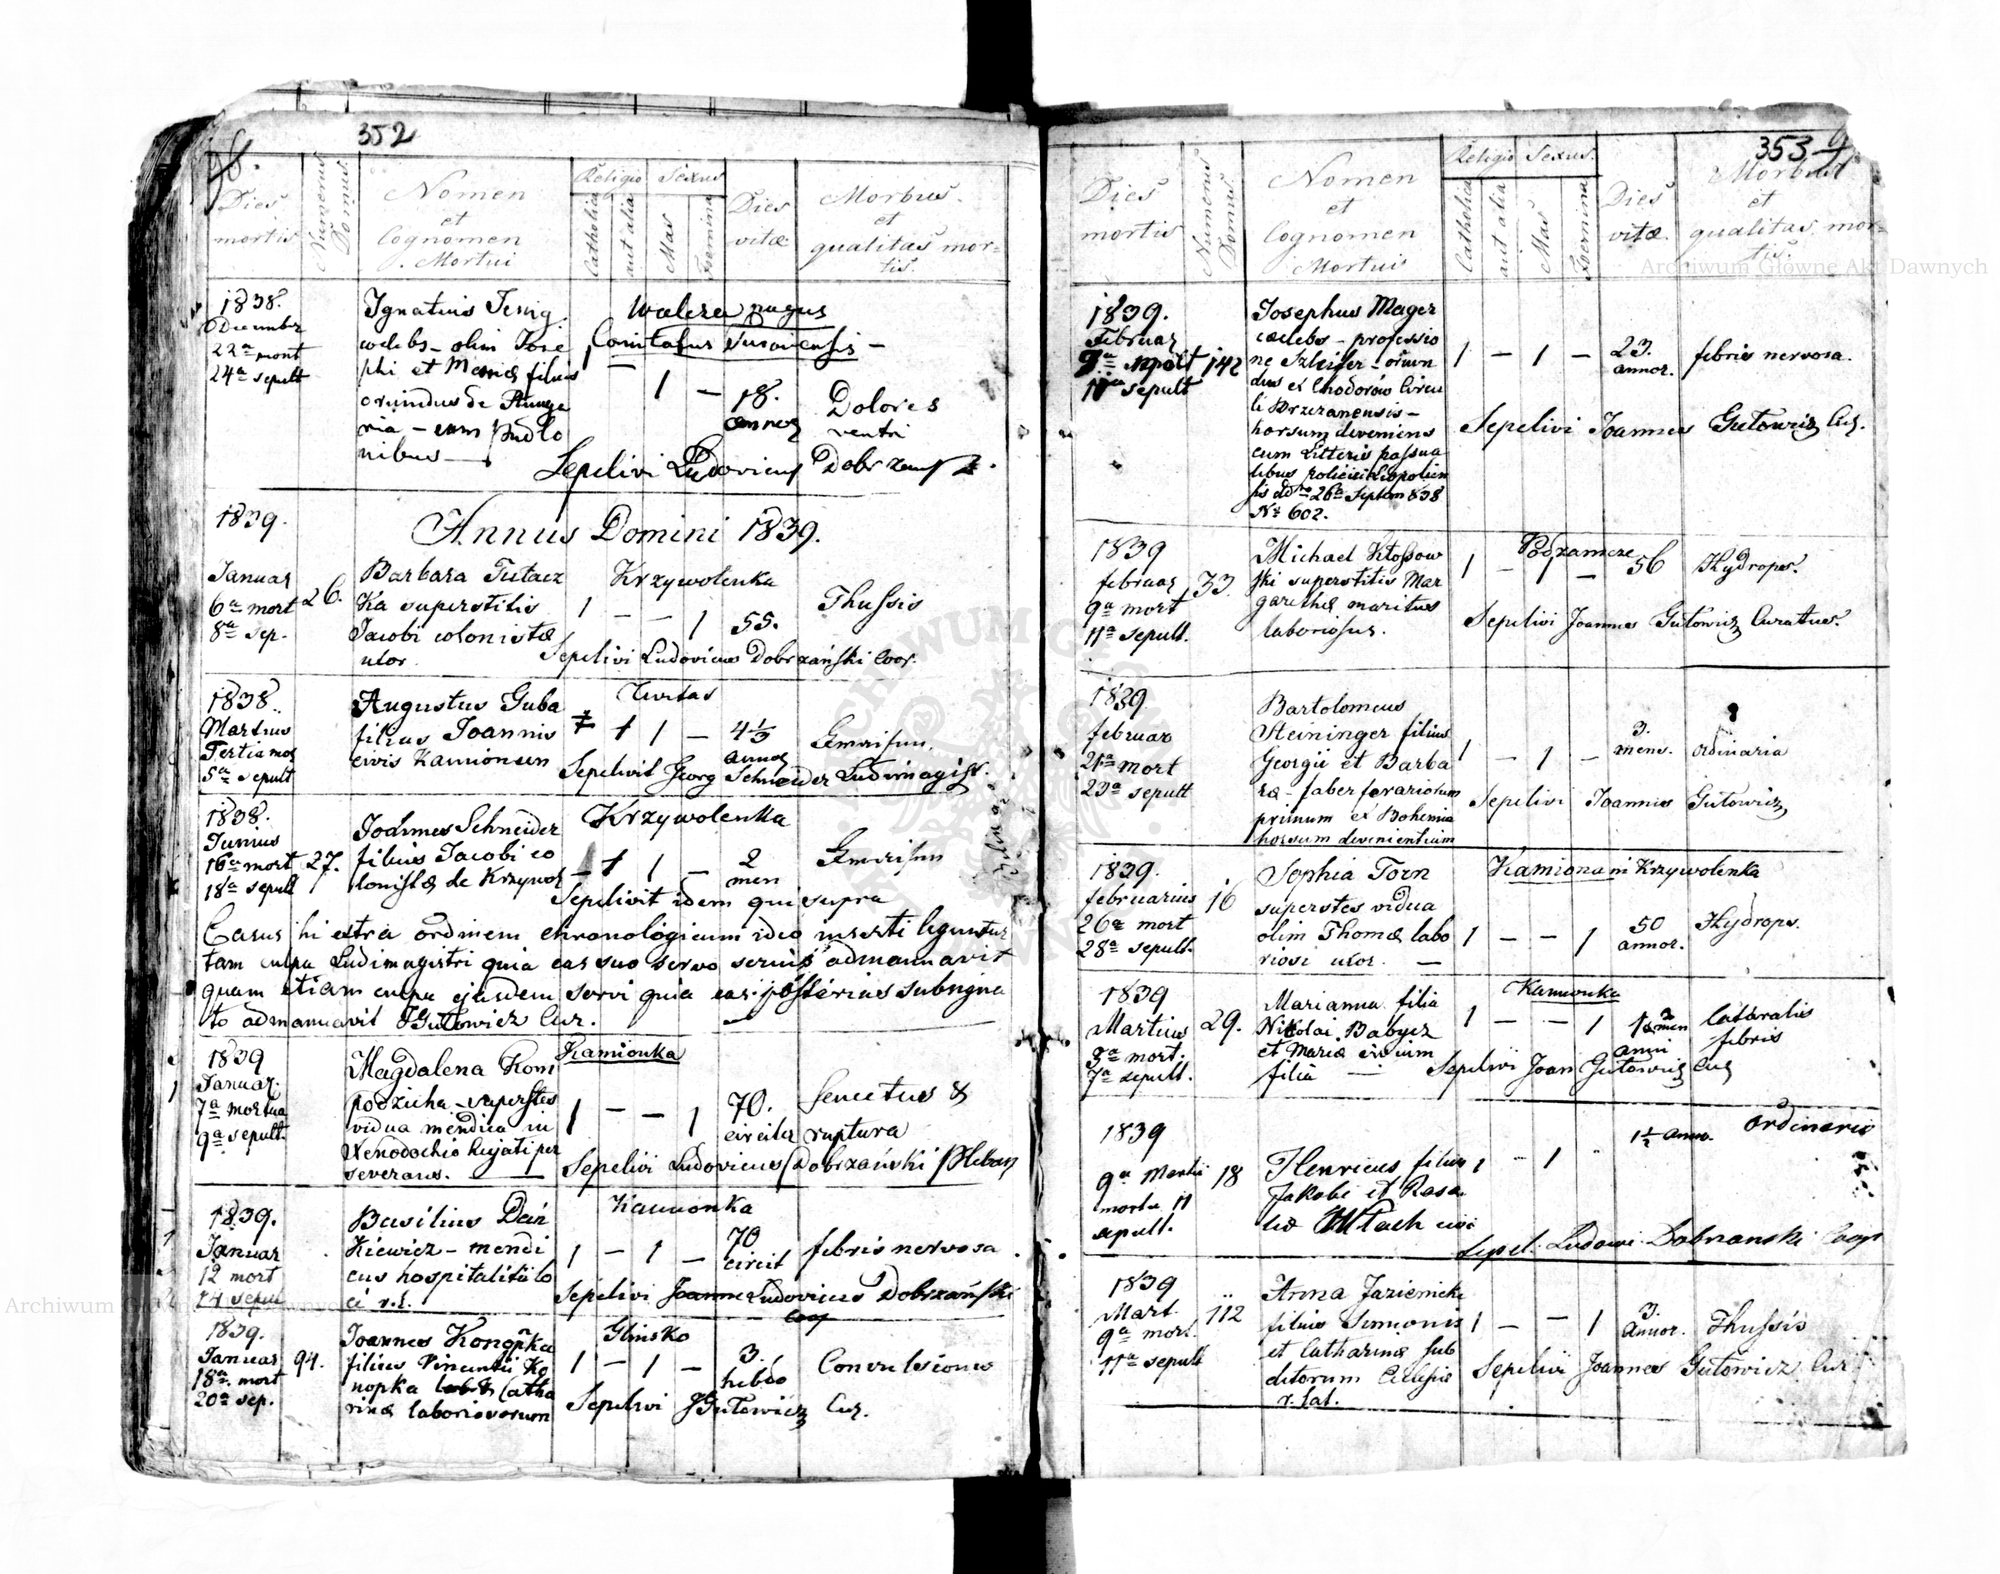 352
98.
Dies mortis
Numerus Domus
Nomen et Cognomen Mortui
Religio
Catholica
aut alia
Sexus
Mas
Foemina
Dies vitæ
Morbus et qualitas mortis.
1838.
Decembr
22a mort
24a sepult
Ignatius
cœlebs – olim Jose
phi et Mariæ filius
oriundus de Hunga
ria – cum
nibus
pagus
Comitatus
1 – 1 –
18.
annor
Dolores
ventri
Sepelivi Ludovicus Dobrzański
1839.
Annus Domini 1839.
Januar
6a mort
8a sep.
26.
Barbara Tutacz
Ka superstitis
Jacobi colonistæ
uxor.
Krzywolenka
1 – – 1
55.
Thussis
Sepelivi Ludovicus Dobrzański Coor.
1838.
Martius
Tertia mor
5a sepult
Augustus Guba
filius Joannis
civis Kamionen
Civitas
1 1 –
4 1/3
annor
Sepelivit Georg Schneider Ludimagist.
1838.
Junius
16a mort
18a sepult
27.
Joannes Schneider
filius Jacobi co
lonistæ de Krzywol
Krzywolenka
– 1 1 –
2
men
Sepelivit idem qui supra
Casus hi extra ordinem chronologicum ideo inserti leguntur
tam culpa Ludimagistri quia eas suo servo serius admanuavit
quam etiam culpa ejusdem servi quia eas posterius subsigna
to admanuavit JGutowicz Cur.
1839
Januar.
7a mortua
9a sepult.
Magdalena Kom
podzicha – superstes
vidua mendica in
Xenodochio hujati per
severans.
Kamionka
1 – – 1
70.
circiter
Senectus &
ruptura
Sepelivi Ludovicus Dobrzański
1839.
Januar
12 mort
14 sepul
Basilius
Kiewicz – mendi
cus hospitalitii lo
ci r.l.
Kamionka
1 – 1 –
70
circit
febris nervosa
Sepelivi Joannes Ludovicus Dobrzański
Coop
1839.
Januar
18a mort
20a sep.
94.
Joannes Konopka
filius Vincentii Ko
nopka et Catha
rinæ laboriosorum
Glinsko
1 – 1 –
3.
hebdo
Convulsiones
Sepelivi JGutowicz Cur.
353
Dies mortis
Numerus Domus
Nomen et Cognomen Mortui
Religio
Catholica
aut alia
Sexus.
Mas
Foemina
Dies vitæ
Morbus et qualitas mortis.
1839.
Februar
9a mort
11a sepult
142
Josephus Mager
cœlebs – professio
ne Szleifer – oriun
dus ex Chodorów Circu
li Brzezanensis –
horsum deveniens
cum Litteris passua
libus policiei Leopolien
sis ddto 26a Septem 838
No 602.
1 – 1 –
23.
annor.
febris nervosa.
Sepelivi Joannes Gutowicz Cur.
1839
februar
9a mort
11a sepult.
33.
Michael Kłossow
ski superstitis Mar
garethæ maritus
laboriosus.
Podzamcze
1 – 1 –
56
Hydrops.
Sepelivi Joannes Gutowicz Curatus.
1839.
februar
21a mort
23a sepult
Bartolomeus
Steininger filius
Georgii et Barba
ræ – faber ferariorum
primum ex Bohemia
horsum devenientium
1 – 1 –
3.
mens.
ordinaria
Sepelivi Joannes Gutowicz
1839.
februarius
26a mort
28a sepult.
16
Sophia Torn
superstes vidua
olim Thomæ labo
riosi uxor. –
Kamionka in Krzywolenka
1 – – 1
50
annor.
Hydrops.
1839
Martius
3a mort.
7a sepult.
29.
Marianna filia
Nikolai Babycz
et Mariæ civium
filia –
Kamionka
1 – – 1
anni
lateralis
febris
Sepelivi Joan Gutowicz Cur
1839
9a Martii
mortu 11
sepult.
18
Henricus filius
Jakobi et Rosa
liæ civi
1 – 1
1 1/2 anno.
ordinaria
Sepel. Ludowi Dobrzanski Coop
1839
Mart.
9a mort.
11a sepult
112
Anna Jaziernicki
filius Simionis
et Catharinæ sub
ditorum Ecclesiæ
r. lat.
1 – – 1
3.
annor.
Thussis
Sepelivi Joannes Gutowicz Cur
Archiwum Główne Akt Dawnych
Archiwum Główne Akt Dawnych